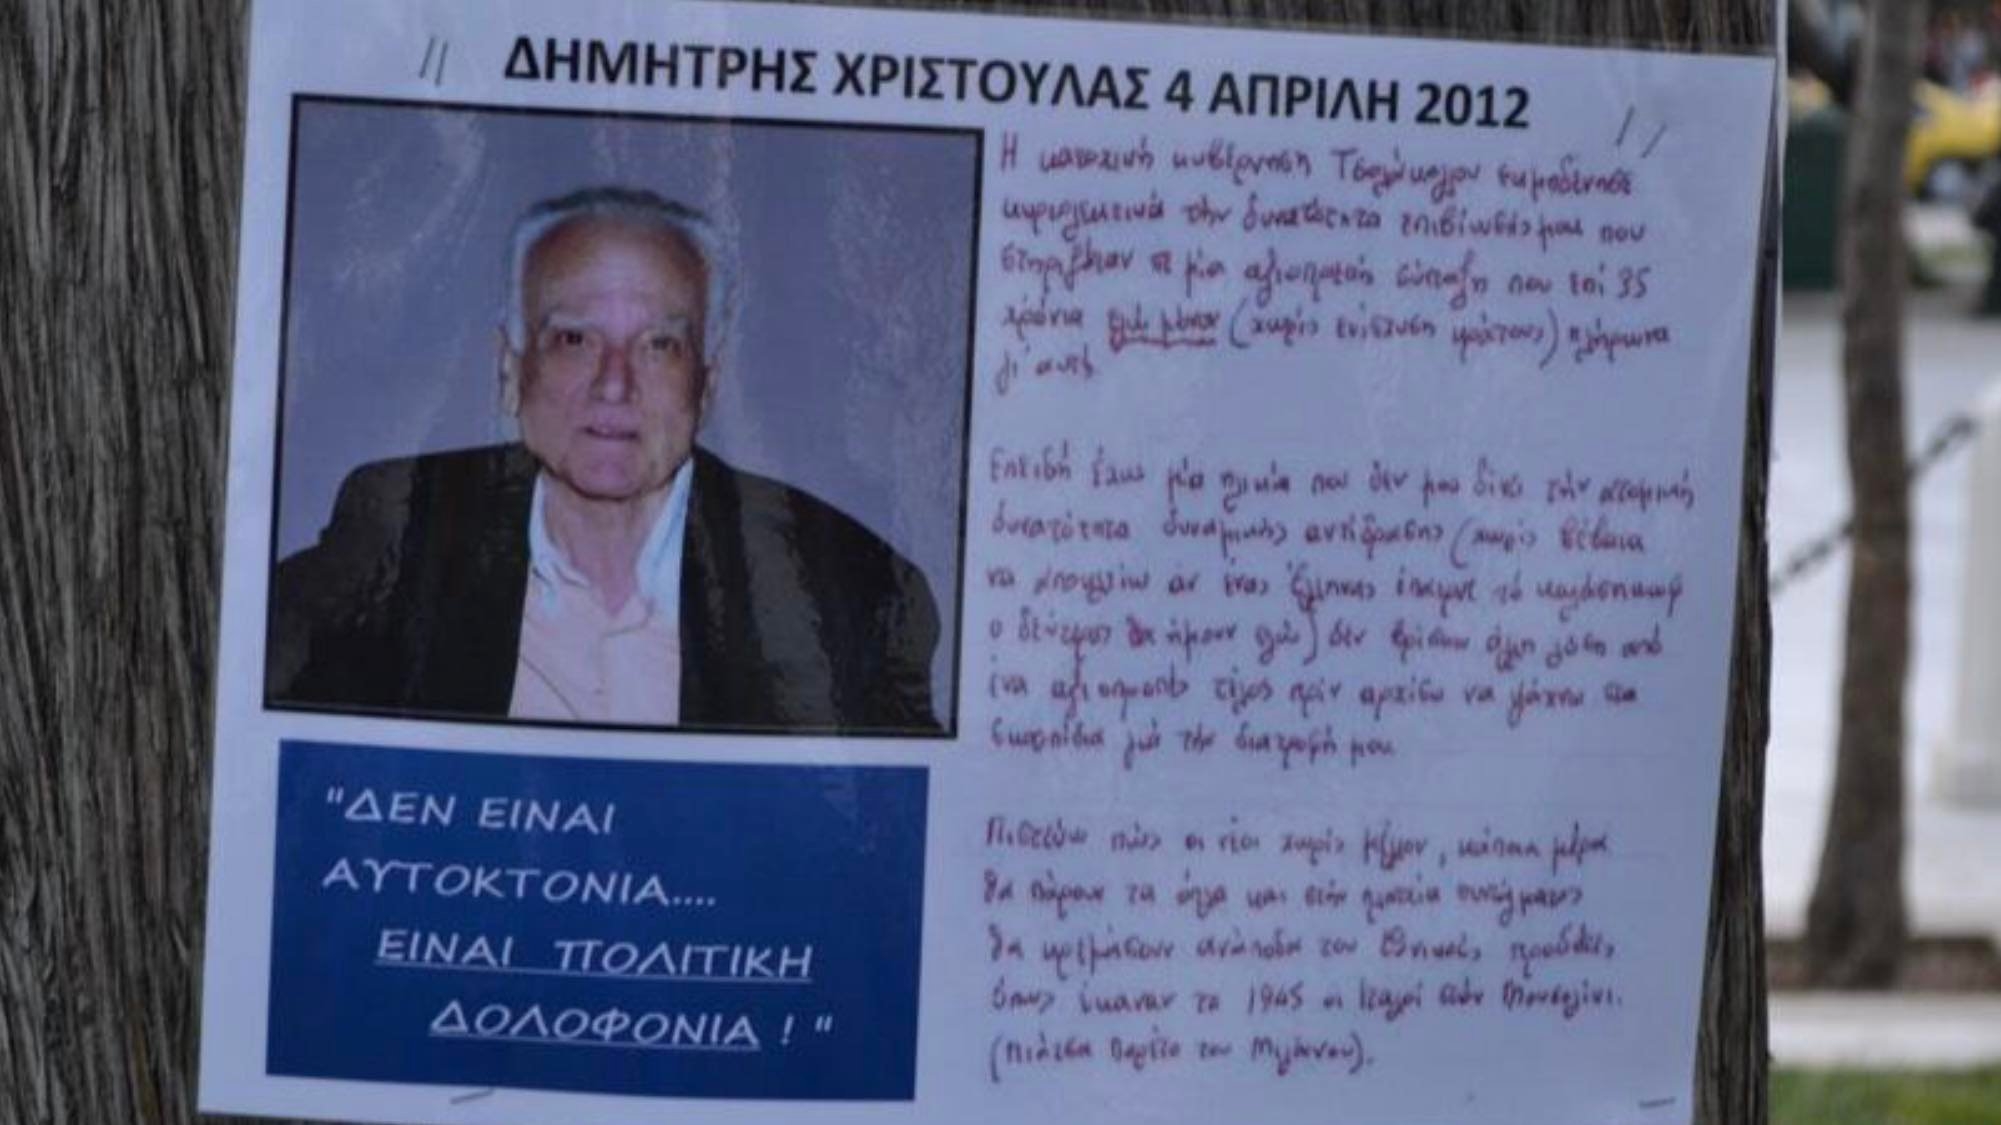 ΔΗΜΗΤΡΗΣ ΧΡΙΣΤΟΥΛΑΣ 4 ΑΠΡΙΛΗ 2012
Η κατοχική κυβέρνηση Τσολάκογλου εκμηδένησε
κυριολεκτικά την δυνατότητα επιβίωσής μου που
στηριζόταν σε μία αξιοπρεπή σύνταξη που επί 35
χρόνια εγώ μόνον (χωρίς ενίσχυση κράτους) πλήρωνα
γι' αυτή.
Επειδή έχω μία ηλικία που δεν μου δίνει την ατομική
δυνατότητα δυναμικής αντίδρασης (χωρίς βέβαια
να αποκλείω αν ένας Έλληνας έπαιρνε το καλάσνικωφ
ο δεύτερος θα ήμουν εγώ) δεν βρίσκω άλλη λύση από
ένα αξιοπρεπές τέλος πρίν αρχίσω να ψάχνω στα
σκουπίδια για την διατροφή μου.
Πιστεύω πώς οι νέοι χωρίς μέλλον, κάποια μέρα
θα πάρουν τα όπλα και στην πλατεία συντάγματος
θα κρεμάσουν ανάποδα τους Εθνικούς προδότες
όπως έκαναν το 1945 οι Ιταλοί στον Μουσολίνι.
(Πιάτσα Πορέτο του Μιλάνου).
"ΔΕΝ ΕΙΝΑΙ
ΑΥΤΟΚΤΟΝΙΑ....
ΕΙΝΑΙ ΠΟΛΙΤΙΚΗ
ΔΟΛΟΦΟΝΙΑ ! "